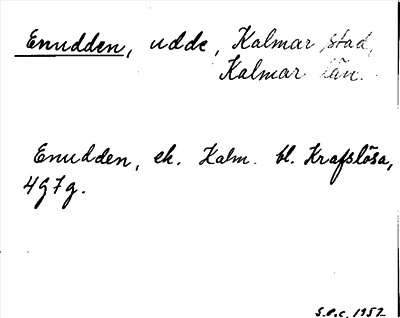 Enudden, udde, Kalmar stad,
Kalmar län.
Enudden, ek. Kalm. bl. Krafslösa,
4g7g.
S.P.C. 1952